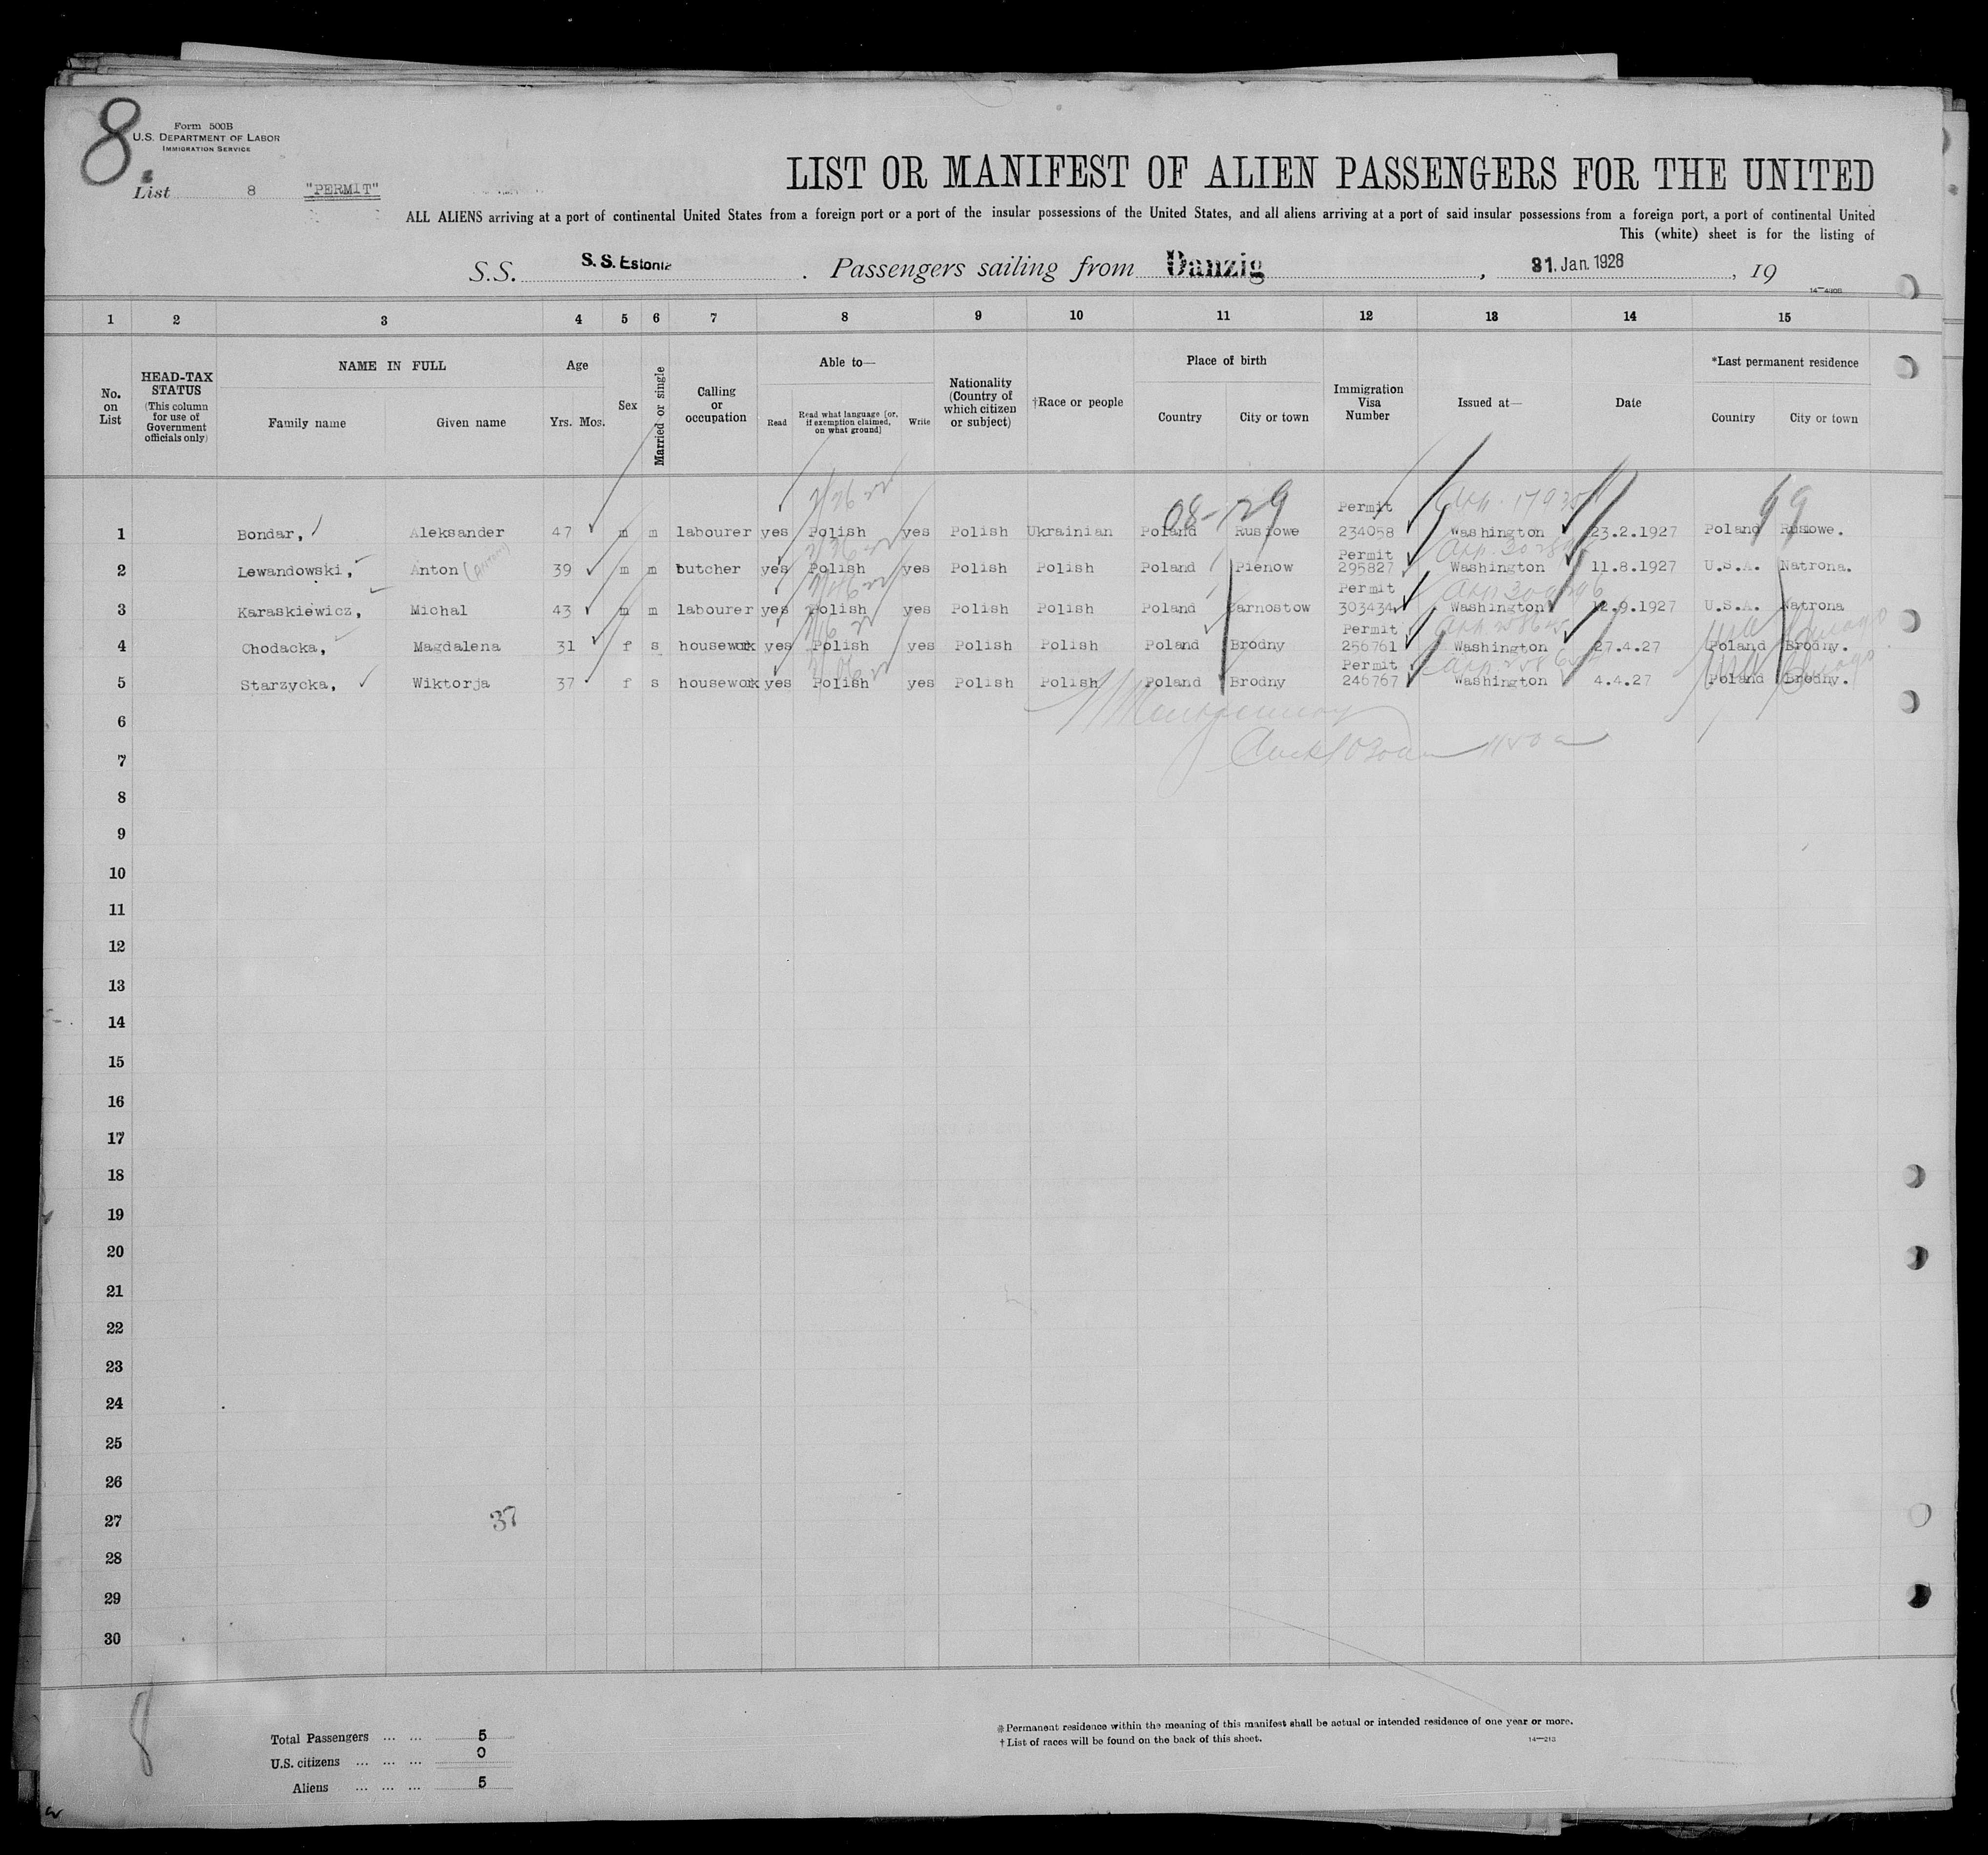 8
Form 500B
U.S. DEPARTMENT OF LABOR
IMMIGRATION SERVICE
List 8 "PERMIT"
LIST OR MANIFEST OF ALIEN PASSENGERS FOR THE UNITED
ALL ALIENS arriving at a port of continental United States from a foreign port or a port of the insular possessions of the United States, and all aliens arriving at a port of said insular possessions from a foreign port, a port of continental United
This (white) sheet is for the listing of
S.S. S. S. Estonia. Passengers sailing from Danzig, 31. Jan. 1928, 19
14—4308
1 2 3 4 5 6 7 8 9 10 11 12 13 14 15
No. on List
HEAD-TAX STATUS (This column for use of Government officials only)
NAME IN FULL
Family name Given name
Age
Yrs. Mos.
Sex
Married or single
Calling or occupation
Able to—
Read Read what language [or, if exemption claimed, on what ground] Write
Nationality (Country of which citizen or subject)
†Race or people
Place of birth
Country City or town
Immigration Visa Number
Issued at—
Date
*Last permanent residence
Country City or town
08-129 99
Permit
1 Bondar, Aleksander 47 m m labourer yes Polish yes Polish Ukrainian Poland 234058 Washington 23.2.1927 Poland
Permit
2 Lewandowski, Anton (Antoni) 39 m m butcher yes Polish yes Polish Polish Poland Pienow 295827 Washington 11.8.1927 U.S.A. Natrona.
Permit
3 Karaskiewicz, Michal 43 m m labourer yes Polish yes Polish Polish Poland 303434 Washington 12.9.1927 U.S.A. Natrona
Permit
4 Chodacka, Magdalena 31 f s housework yes Polish yes Polish Polish Poland Brodny 256761 Washington 27.4.27 Poland Brodny. USA Chicago
Permit
5 Starzycka, Wiktorja 37 f s housework yes Polish yes Polish Polish Poland Brodny 246767 Washington 4.4.27 Poland Brodny. USA Chicago
6
Montgomery
7
8
9
10
11
12
13
14
15
16
17
18
19
20
21
22
23
24
25
26
27
37
28
29
30
8
Total Passengers ... ... 5
U.S. citizens ... ... ... 0
Aliens ... ... ... 5
*Permanent residence within the meaning of this manifest shall be actual or intended residence of one year or more.
†List of races will be found on the back of this sheet.
14—213